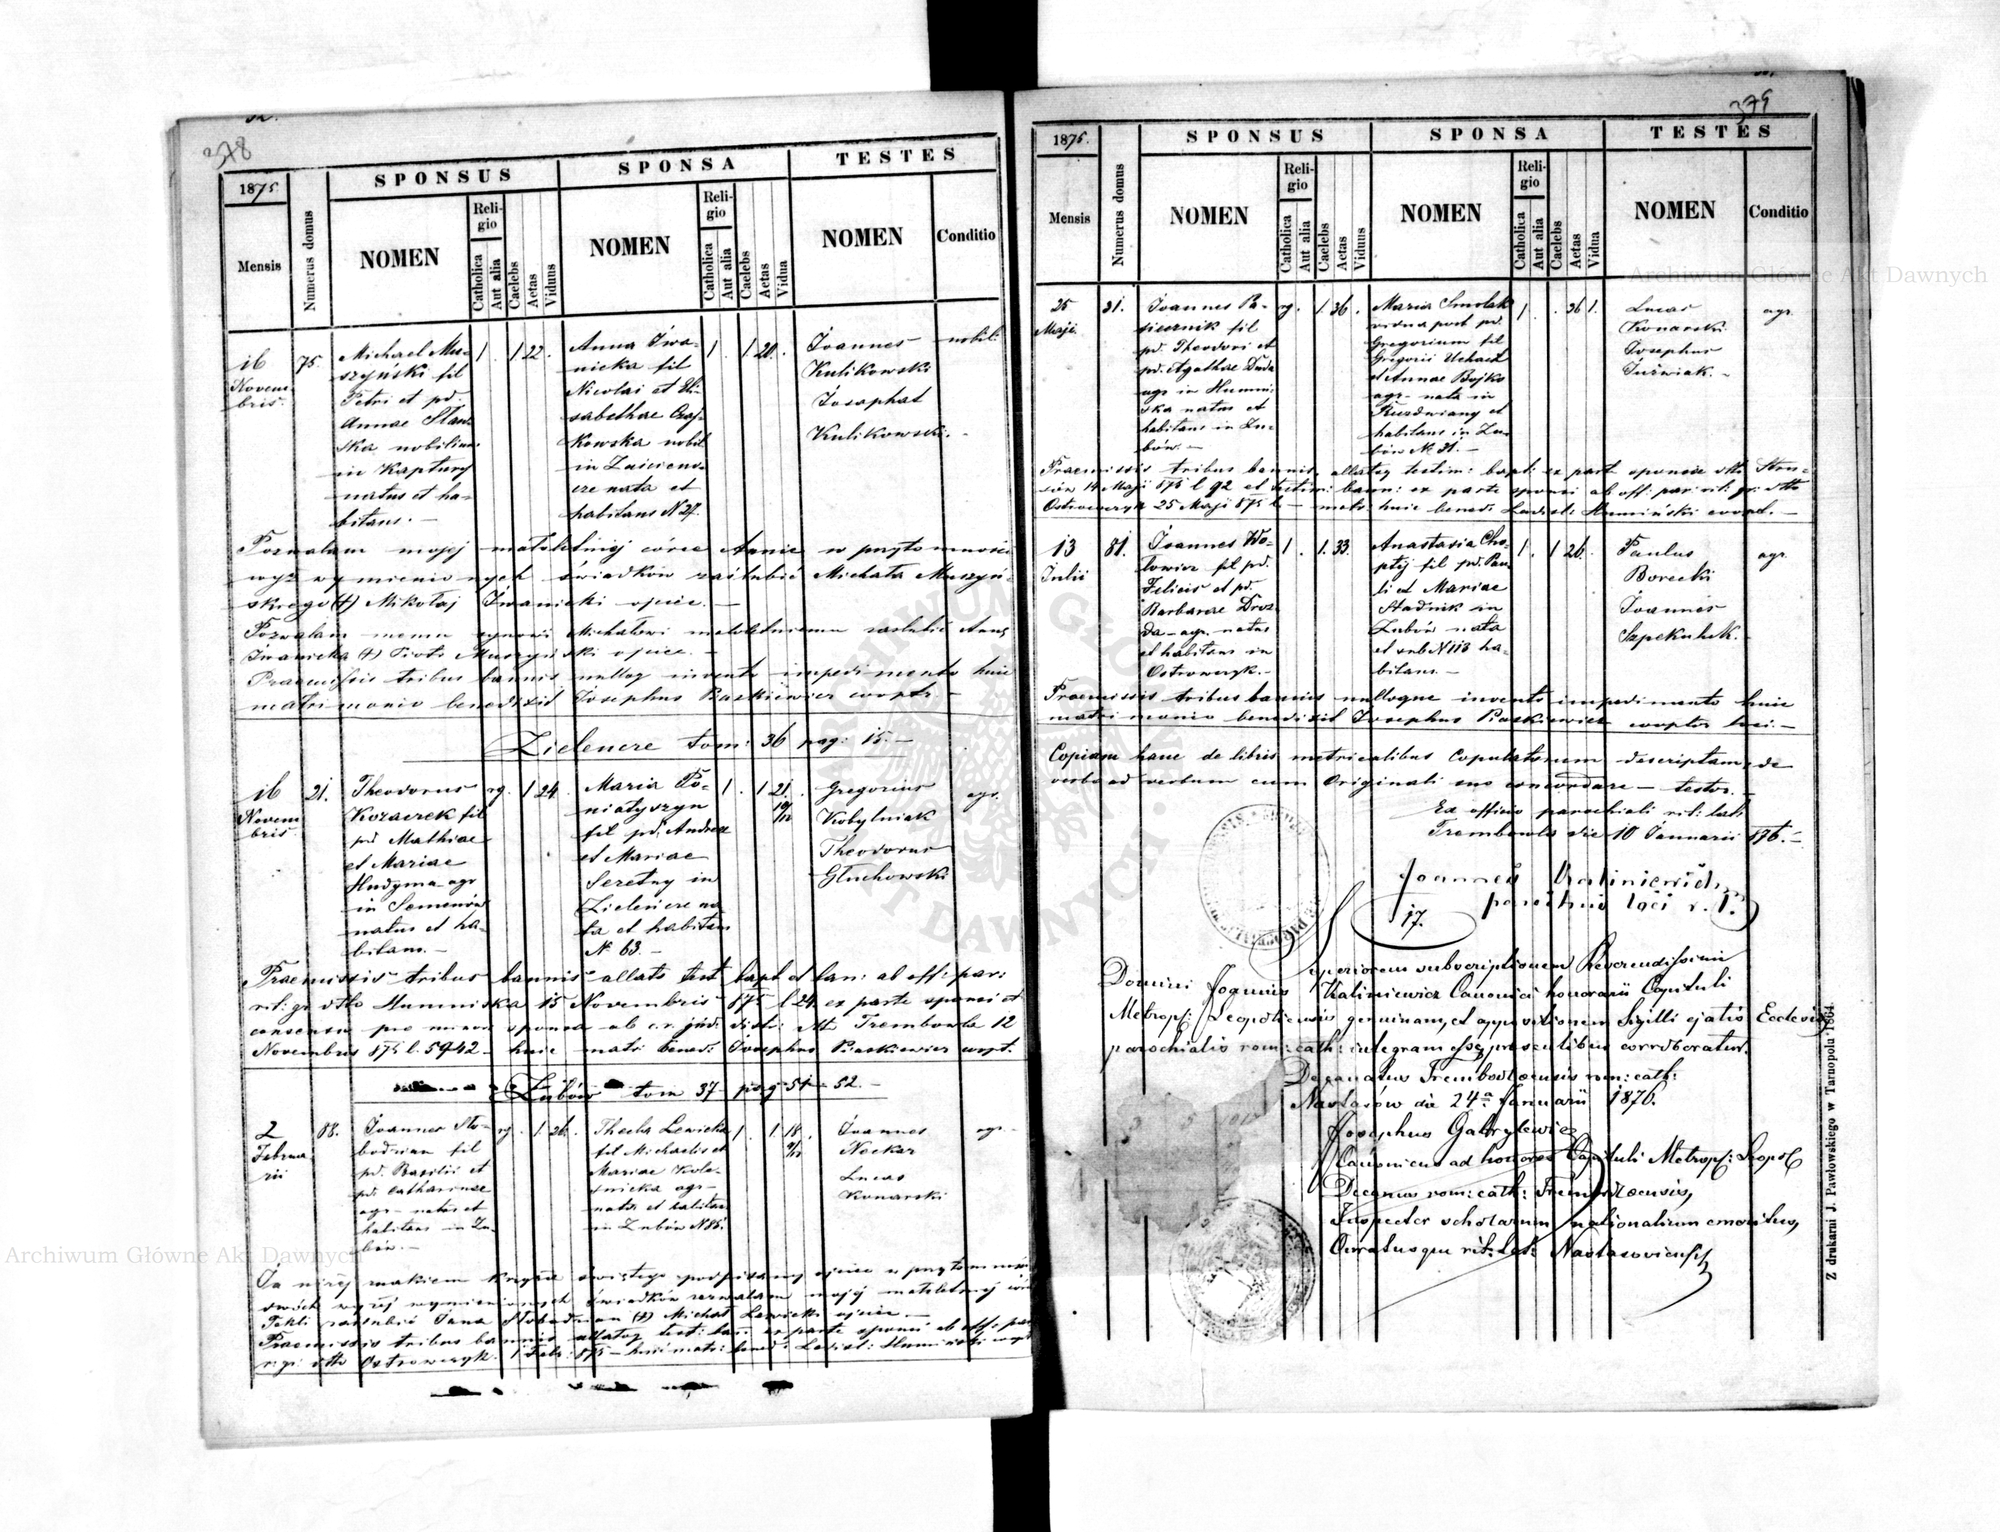 378
1875
SPONSUS
SPONSA
TESTES
Mensis
Numerus domus
NOMEN
Religio
Catholica
Aut alia
Caelebs
Aetas
Viduus
NOMEN
Religio
Catholica
Aut alia
Caelebs
Aetas
Vidua
NOMEN
Conditio
16
Novem
bris
75.
Michael Mu-
szyński fil
Petri et pd.
Annae
nobilium
in Kaptury
natus et ha-
bitans. —
1
1 22.
Anna Iwa-
nicka fil
Nicolai et Eli-
sabethae
nobil
in
nata et
habitans N 27.
1
1 20.
Joannes
Kulikowski
Josaphat
Kulikowski. -
nobil.
Pozwalam mojej małoletniej córce Annie w przytomności
wyż wymienionych świadków zaślubić Michała Muszyń-
skiego (+) Mikołaj Iwanicki ojciec. —
Pozwalam memu synowi Michałowi małoletniemu zaślubić Annę
Iwanicką (+) Piotr Muszyński ojciec. —
Praemissis tribus bannis nulloq invento impedimento huic
matrimonio benedixit Josephus Paskiewicz cooptr. —
Zielencze tom: 36 pag: 15. —
16
Novem
bris
21.
Theodorus
Kozaczek fil
pd Mathiae
et Mariae
Hudyma agr
in Semenów
natus et ha-
bitans. —
rg.
1 24.
Maria Po-
niatyszyn
fil pd. Andreae
et Mariae
Seretny in
Zielencze na
ta et habitans
N 63. —
1.
1 21.
10/12
Gregorius
Kobylniak
Theodorus
Głuchowski
agr.
Praemissis tribus bannis allato test bapt et ban: ab off: par:
rit: gr. dtto Humniska 15 Novembris 875 l 24 ex parte sponsi et
consensu pro minor sponsa ab c.r. jud: distr: dtt Trembowla 12
Novembris 875 l. 5942 - huic matri bened: Josephus Paskiewicz coopt.
Zubów tom 37 pag 51 - 52. —
2
Februa-
rii
88.
Joannes Sło-
bodzian fil
pd. Basilii et
pd. Catharinae
agr - natus et
habitans in Zu-
bów. —
rg.
1. 26.
Thecla Lewicka
fil Michaelis et
Mariae
agr -
nata et habitans
in Zubów N 85.
1.
1. 18
Joannes
Neckar
Lucas
Konarski
agr. -
Ja niżej znakiem krzyża świętego podpisany ojciec w przytomności
dwóch wyżej wymienionych świadków zezwalam mojej małoletniej córce
Tekli zaślubić Jana Słobodzian (+) Michał Lewicki ojciec. —
Praemissis tribus bannis allatoq test: ban: ex parte sponsi ab off: par
r: gr: dtto Ostrowczyk 1 Febr: 875 - huic matr: bened: Ladisl: Humiński coopt
375
1875.
SPONSUS
SPONSA
TESTES
Mensis
Numerus domus
NOMEN
Religio
Catholica
Aut alia
Caelebs
Aetas
Viduus
NOMEN
Religio
Catholica
Aut alia
Caelebs
Aetas
Vidua
NOMEN
Conditio
25
Maji
31.
Joannes Pa-
siecznik fil
pd. Theodori et
pd. Agathae Duda
agr in Humni-
ska natus et
habitans in Zu-
bów. —
rg.
1. 36.
Maria Smolak
vidua post pd.
Gregorium fil
Gregorii
et Annae Bojko
agr - nata in
et
habitans in Zu-
bów N. 31. —
1.
36 1.
Lucas
Konarski
Josephus
Juźwiak. -
agr.
Praemissis tribus bannis, allatoq testim: bapt: ex part sponsae dtto Stru-
sów 14 Maji 875 l 92 et testim: bann: ex parte sponsi ab off: par: rit: gr: dtto
Ostrowczyk 25 Maji 875 l. — matr: huic bened: Ladisl: Humiński coopt. —
13
Julii
81.
Joannes Wo-
towicz fil pd.
Felicis et pd.
Barbarae Droz-
da - agr. natus
et habitans in
Ostrowczyk. —
1.
1. 33.
Anastasia Cho-
ptij fil pd. Pau-
li et Mariae
Stadnik in
Zubów nata
et sub N 118 ha-
bitans. —
1.
1 26.
Paulus
Borecki
Joannes
Sapekuhik. -
agr.
Praemissis tribus bannis nulloque invento impedimento huic
matrimonio benedixit Josephus Paskiewicz cooptr loci. —
Copiam hanc de libris metricalibus Copulatorum descriptam, de
verbo ad verbum cum Originali suo concordare — testor. —
Ex officio parochiali rit: lati
Trembowla die 10 Januarii 876. —
Joannes Kaliniewicz
parochus loci r. l.
17.
Superiorem subscriptionem Reverendissimi
Domini Joannis Kaliniewicz Canonici honorarii Capituli
Metropl: Leopoliensis genuinam, et appositionem Sigilli ejatis Ecclesiae
parochialis rom: cath: integram esse praesentibus corroboratur.
Decanatus Trembovlaensis rom: cath:
Nastasów die 24ª Januarii 1876.
Josephus Gabrylewicz
Canonicus ad honores Capituli Metropl: Leopol
Decanus rom: cath: Trembovlaensis,
Inspector scholarum nationalium emeritus,
Curatusque rit: lat: Nastasoviensis
Z drukarni J. Pawłowskiego w Tarnopolu 1864.
ARCHIWUM GŁÓWNE AKT DAWNYCH
Archiwum Główne Akt Dawnych
Archiwum Główne Akt Dawnych